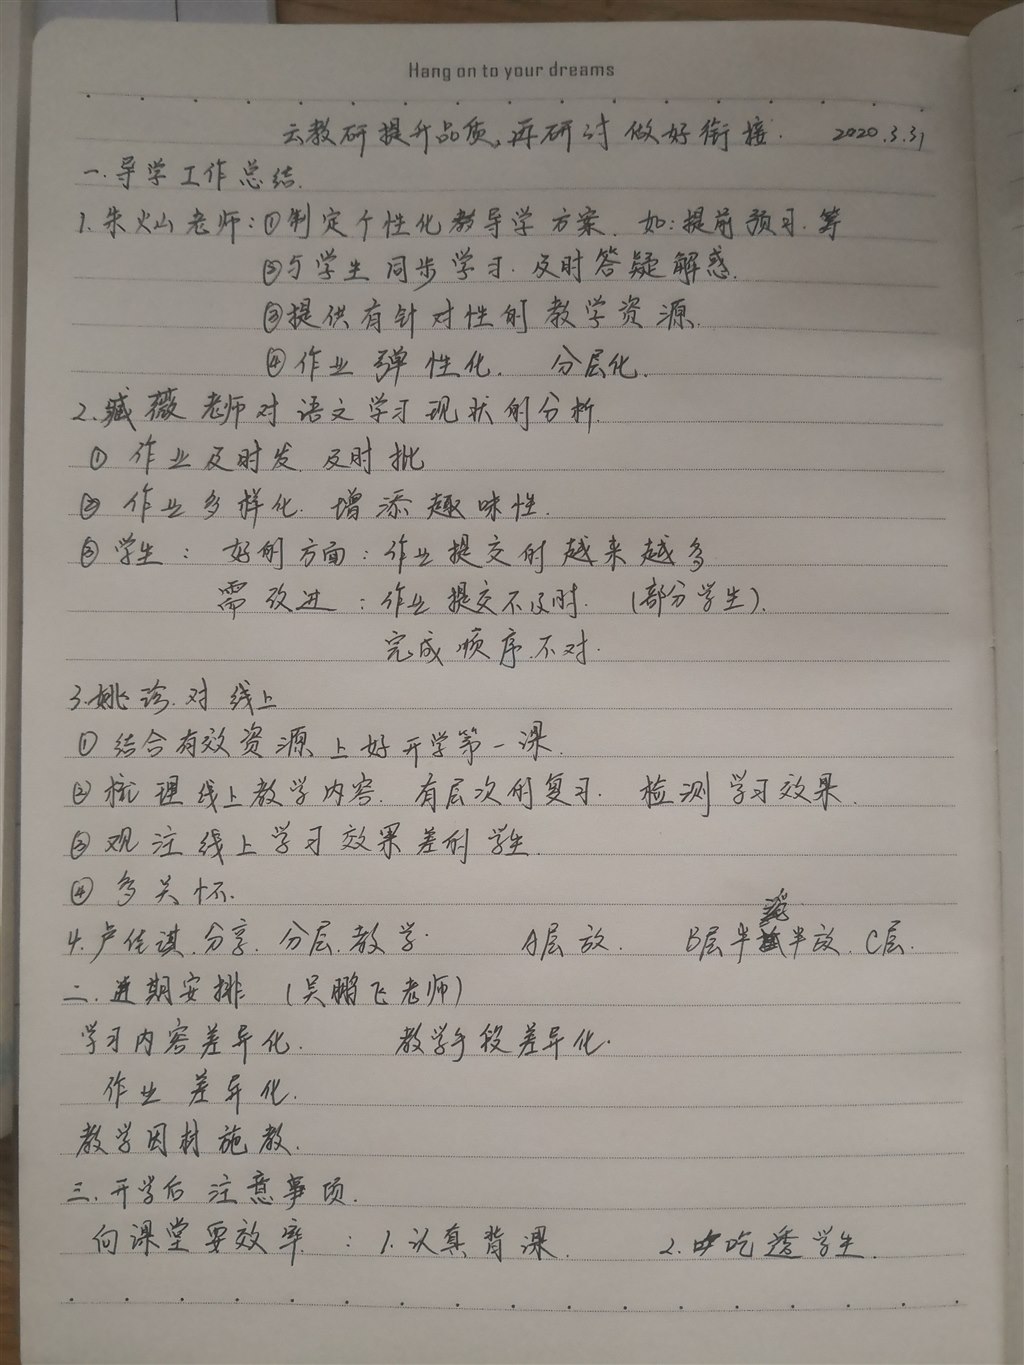 Hang on to your dreams
云教研提升品质,再研讨做好衔接. 2020.3.31
一.导学工作总结.
1.朱火山老师:①制定个性化教导学方案. 如:提前预习.等
②与学生同步学习.及时答疑解惑.
③提供有针对性的教学资源.
④作业弹性化. 分层化.
2.臧薇老师对语文学习现状的分析.
① 作业及时发.及时批
② 作业多样化.增添趣味性.
③学生: 好的方面:作业提交的越来越多
需改进:作业提交不及时.(部分学生).
完成顺序.不对.
3.姚 对线上
①结合有效资源上好开学第一课.
②梳理线上教学内容.有层次的复习. 检测学习效果.
③观注线上学习效果差的学生.
④多关怀.
4.卢佳 分享.分层.教学. A层放. B层半 半放. C层.
二.近期安排 (吴鹏飞老师)
学习内容差异化. 教学手段差异化.
作业差异化.
教学因材施教.
三.开学后注意事项.
向课堂要效率 : 1.认真背课. 2.吃透学生.